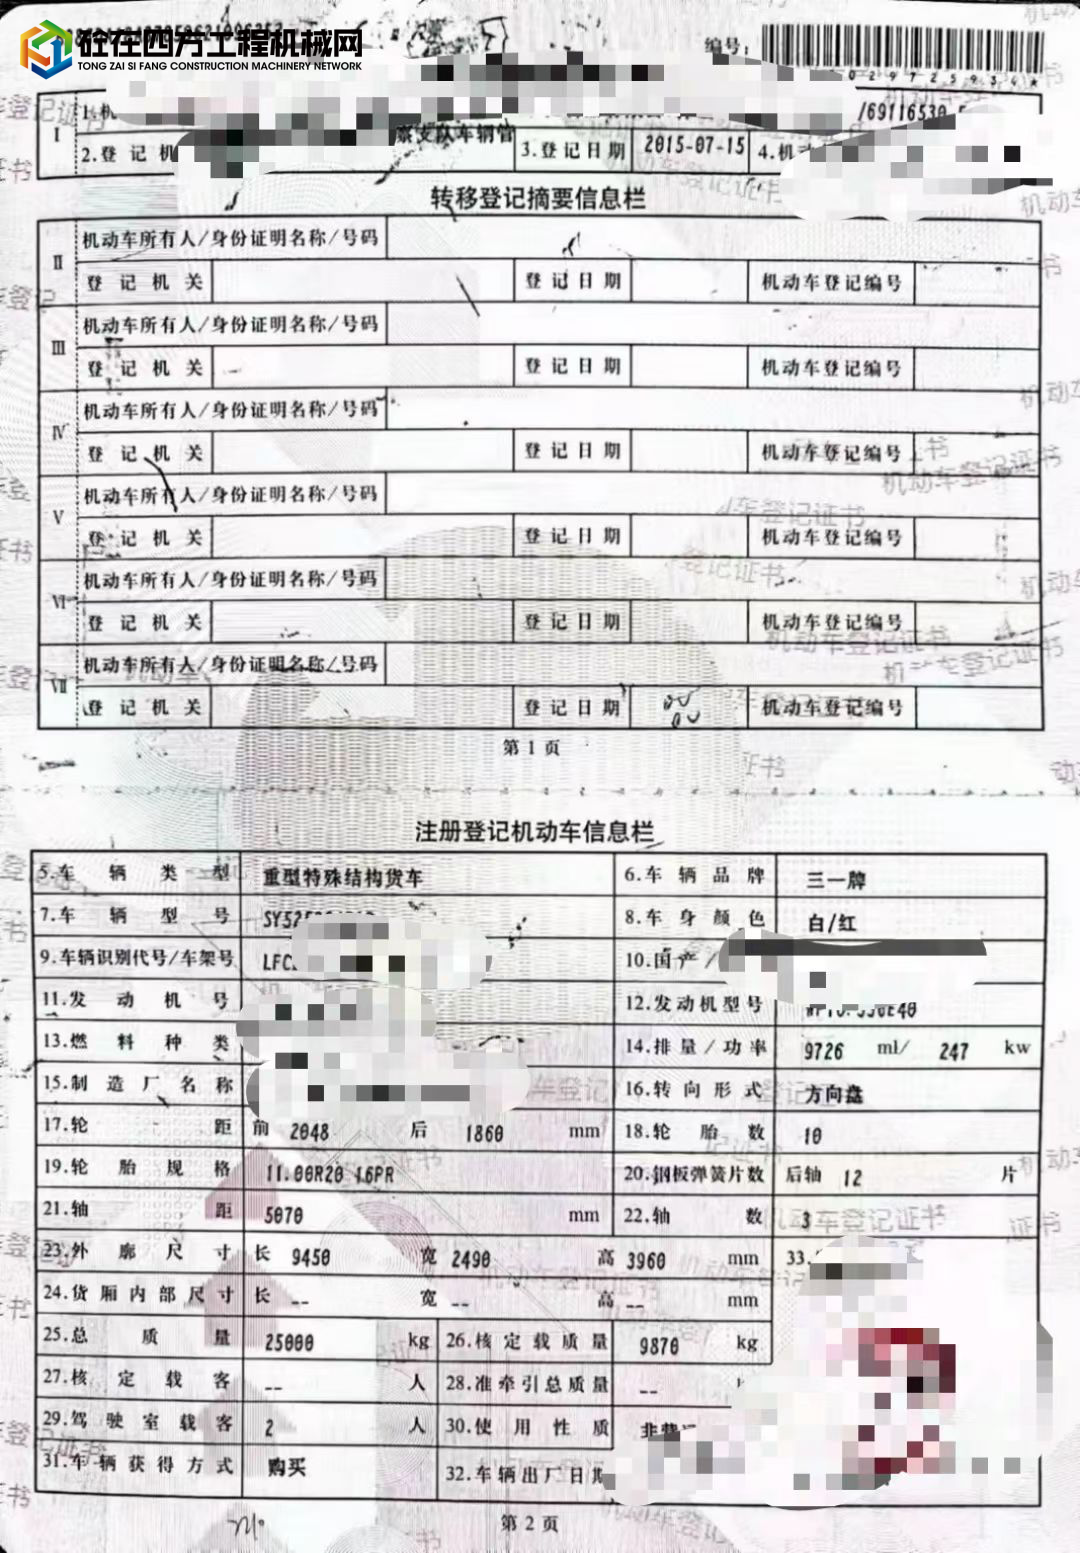 砼在四方工程机械网
TONG ZAI SI FANG CONSTRUCTION MACHINERY NETWORK
编号:
I
1.机
/69116530
2.登 记 机
察支队车辆管
3.登记日期
2015-07-15
4.机
转移登记摘要信息栏
II
机动车所有人/身份证明名称/号码
登 记 机 关
登记日期
机动车登记编号
III
机动车所有人/身份证明名称/号码
登 记 机 关
登记日期
机动车登记编号
IV
机动车所有人/身份证明名称/号码
登 记 机 关
登记日期
机动车登记编号
V
机动车所有人/身份证明名称/号码
登 记 机 关
登记日期
机动车登记编号
VI
机动车所有人/身份证明名称/号码
登 记 机 关
登记日期
机动车登记编号
VII
机动车所有人/身份证明名称/号码
登 记 机 关
登记日期
机动车登记编号
第 1 页
注册登记机动车信息栏
5.车 辆 类 型 重型特殊结构货车 6.车 辆 品 牌 三一牌
7.车 辆 型 号 8.车 身 颜 色 白/红
9.车辆识别代号/车架号 LFC 10.国产/
11.发 动 机 号 12.发动机型号
13.燃 料 种 类 14.排量/功率 9726 ml/ 247 kw
15.制 造 厂 名 称 16.转向形式 方向盘
17.轮 距 前 2048 后 1860 mm 18.轮 胎 数 10
19.轮 胎 规 格 11.00R20 16PR 20.钢板弹簧片数 后轴 12 片
21.轴 距 5070 mm 22.轴 数 3
23.外 廓 尺 寸 长 9450 宽 2490 高 3960 mm 33.
24.货厢内部尺寸 长 -- 宽 -- 高 -- mm
25.总 质 量 25000 kg 26.核定载质量 9870 kg
27.核 定 载 客 -- 人 28.准牵引总质量 --
29.驾 驶 室 载 客 2 人 30.使 用 性 质
31.车辆获得方式 购买 32.车辆出厂日期
第 2 页